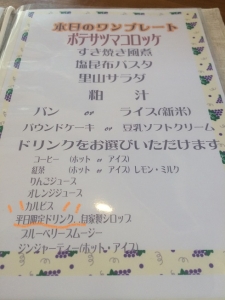 本日のワンプレート
ポテサツマコロッケ
すき焼き風煮
塩昆布パスタ
里山サラダ
粕 汁
パン or ライス(新米)
パウンドケーキ or 豆乳ソフトクリーム
ドリンクをお選びいただけます
コーヒー (ホット or アイス)
紅茶 (ホット or アイス) レモン・ミルク
りんごジュース
オレンジジュース
カルピス
平日限定ドリンク 自家製シロップ
ブルーベリースムージー
ジンジャーティー(ホット・アイス)